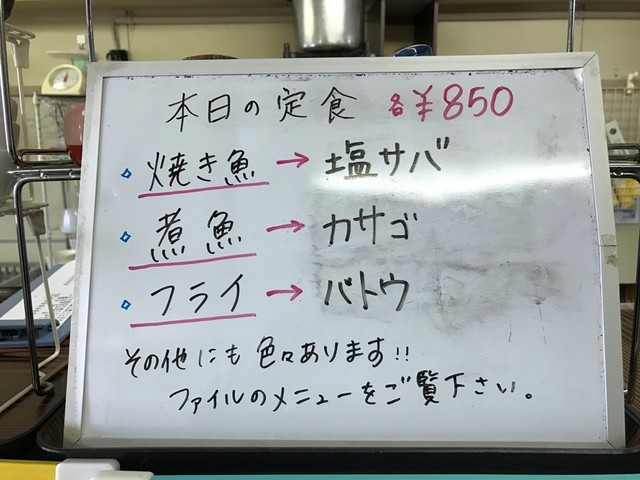 本日の定食 各¥850
焼き魚 → 塩サバ
煮魚 → カサゴ
フライ → バトウ
その他にも色々あります!!
ファイルのメニューをご覧下さい。